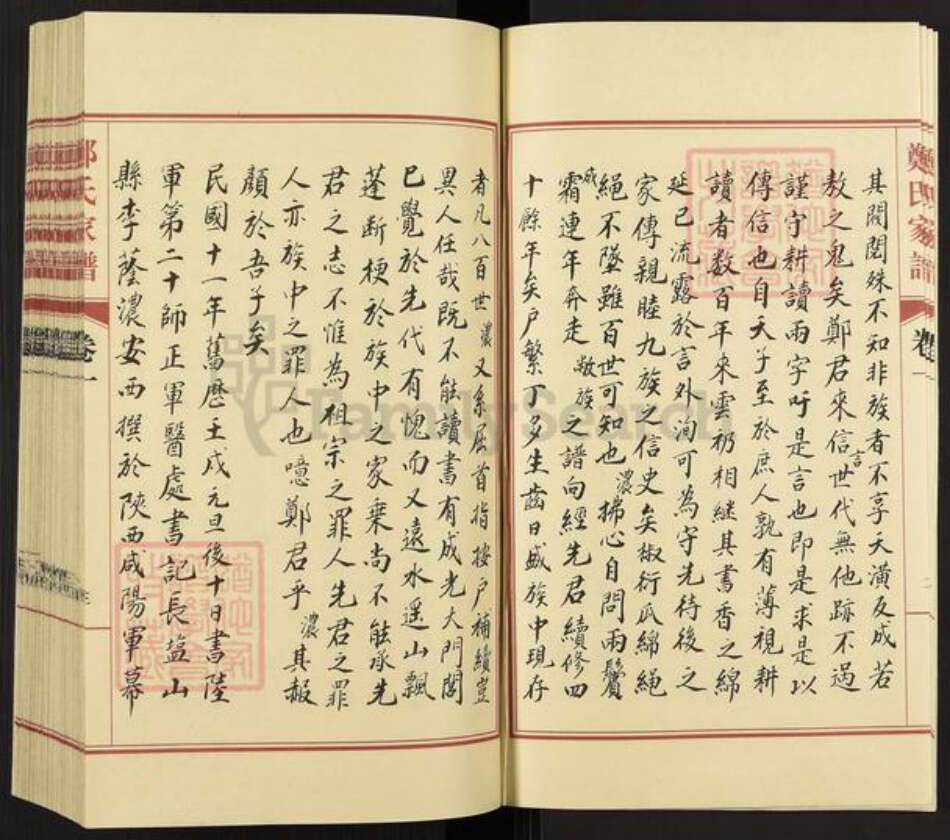 其閥閱殊不知非族者不享天潢反成若
敖之鬼矣鄭君來信言世代無他跡不過
謹守耕讀兩字吁是言也即是求是以
傳信也自天子至於庶人孰有薄視耕
讀者数百年來雲礽相繼其書香之綿
延已流露於言外洵可為守先待後之
家傳親睦九族之信史矣椒衍瓜綿繩
繩不墜雖百世可知也濃捫心自問兩鬢
成霜連年奔走敝族之譜向經先君續修四
十餘年矣户繁丁多生齒日盛族中現存
者凡八百世濃又系居首指按户補續豈
異人任哉既不能讀書有成光大門閭
已覺於先代有愧而又遠水遥山飄
蓬断梗於族中之家乗尚不能承先
君之志不惟為祖宗之罪人先君之罪
人亦族中之罪人也噫鄭君乎濃其赧
顏於吾子矣
民國十一年舊歷壬戌元旦後十日書陸
軍第二十師正軍醫處書記長盐山
縣李蔭濃安西撰於陝西咸陽軍幕
鄭氏家譜
卷一
鄭氏家譜
FamilySearch